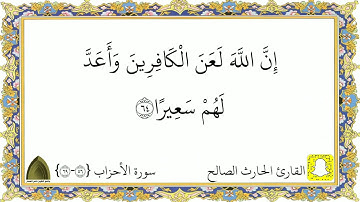 إِنَّ اللَّهَ لَعَنَ الْكَافِرِينَ وَأَعَدَّ
لَهُمْ سَعِيرًا ﴿٦٤﴾
القارئ الحارث الصالح
سورة الأحزاب